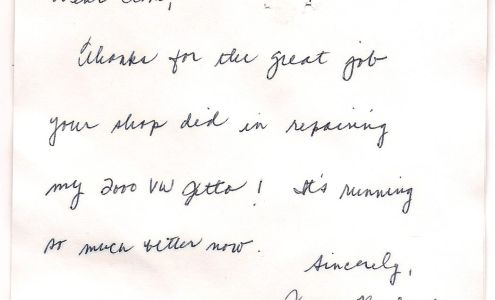 Thanks for the great job
your shop did in repairing
my 2000 VW Jetta! It's running
so much better now.
Sincerely,